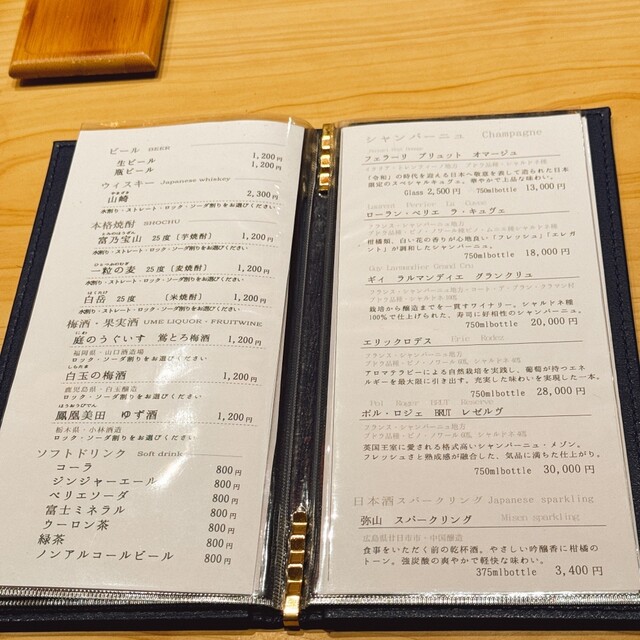 ビール BEER
生ビール 1,200円
瓶ビール 1,200円
ウィスキー Japanese whiskey
やまざき
山崎 2,300円
水割り・ストレート・ロック・ソーダ割りをお選びください
本格焼酎 SHOCHU
とみのほうざん
富乃宝山 25度 〔芋焼酎〕 1,200円
水割り・ストレート・ロック・ソーダ割りをお選びください
ひとつぶのむぎ
一粒の麦 25度 〔麦焼酎〕 1,200円
水割り・ストレート・ロック・ソーダ割りをお選びください
はくたけ
白岳 25度 〔米焼酎〕 1,200円
水割り・ストレート・ロック・ソーダ割りをお選びください
梅酒・果実酒 UME LIQUOR・FRUITWINE
にわ
庭のうぐいす 鶯とろ梅酒 1,200円
福岡県・山口酒造場
ロック・ソーダ割りをお選びください
しらたま
白玉の梅酒 1,200円
鹿児島県・白玉醸造
ロック・ソーダ割りをお選びください
ほうおうびでん
鳳凰美田 ゆず酒 1,200円
栃木県・小林酒造
ロック・ソーダ割りをお選びください
ソフトドリンク Soft drink
コーラ 800円
ジンジャーエール 800円
ペリエソーダ 800円
富士ミネラル 800円
ウーロン茶 800円
緑茶 800円
ノンアルコールビール 800円
シャンパーニュ Champagne
フェラーリ ブリュット オマージュ
イタリア・トレンティーノ地方 ブドウ品種・シャルドネ種
「令和」の時代を迎える日本へ敬意を表して造られた日本
限定のスペシャルキュヴェ。華やかで上品な味わい。
Glass 2,500円 750mlbottle 13,000円
Laurent Perrier La Cuvee
ローラン・ペリエ ラ・キュヴェ
フランス・シャンパーニュ地方
柑橘類、白い花の香りが心地良い「フレッシュ」「エレガ
ント」が調和したシャンパーニュ。
750mlbottle 18,000円
Guy Larmandier Grand Cru
ギィ ラルマンディエ グランクリュ
栽培から醸造までを一貫すオワイナリー。シャルドネ種
100%で仕上げられた、寿司に好相性のシャンパーニュ。
750mlbottle 20,000円
エリックロデス Eric Rodez
フランス・シャンパーニュ地方
アロマテラピーによる自然栽培を実践し、葡萄が持つエネ
ルギーを最大限に引き出す。充実した味わいを実現した一本。
750mlbottle 28,000円
Pol Roger BRUT Reserve
ポル・ロジェ BRUT レゼルヴ
フランス・シャンパーニュ地方
英国王室に愛される格式高いシャンパーニュ・メゾン。
フレッシュさと熟成感が融合した、気品に満ちた仕上がり。
750mlbottle 30,000円
日本酒スパークリング Japanese sparkling
弥山 スパークリング Misen sparkling
広島県廿日市市・中国醸造
食事をいただく前の乾杯酒。やさしい吟醸香に柑橘の
トーン。強炭酸の爽やかで軽快な味わい。
375mlbottle 3,400円